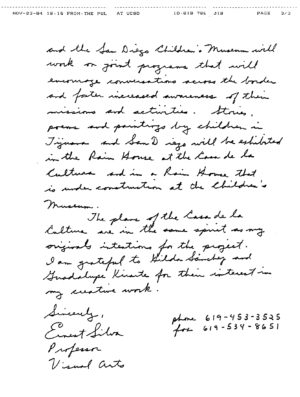 NOV-23-94 18:15 FROM:THE PUL AT UCSD PAGE 2/2
and the San Diego Children's Museum will
work on joint programs that will
encourage conversations across the border
and foster increased awareness of their
missions and activities. Stories,
poems and paintings by children in
Tijuana and San Diego will be exhibited
in the Rain House at the Casa de la
Cultura and in a Rain House that
is under construction at the Children's
Museum.
The plans of the Casa de la
Cultura are in the same spirit as my
original intentions for the project.
I am grateful to Gilda Sánchez and
Guadalupe Kirarte for their interest in
my creative work.
Sincerely,
Ernest Silva
Professor
Visual Arts
phone 619-453-3525
fax 619-534-8651